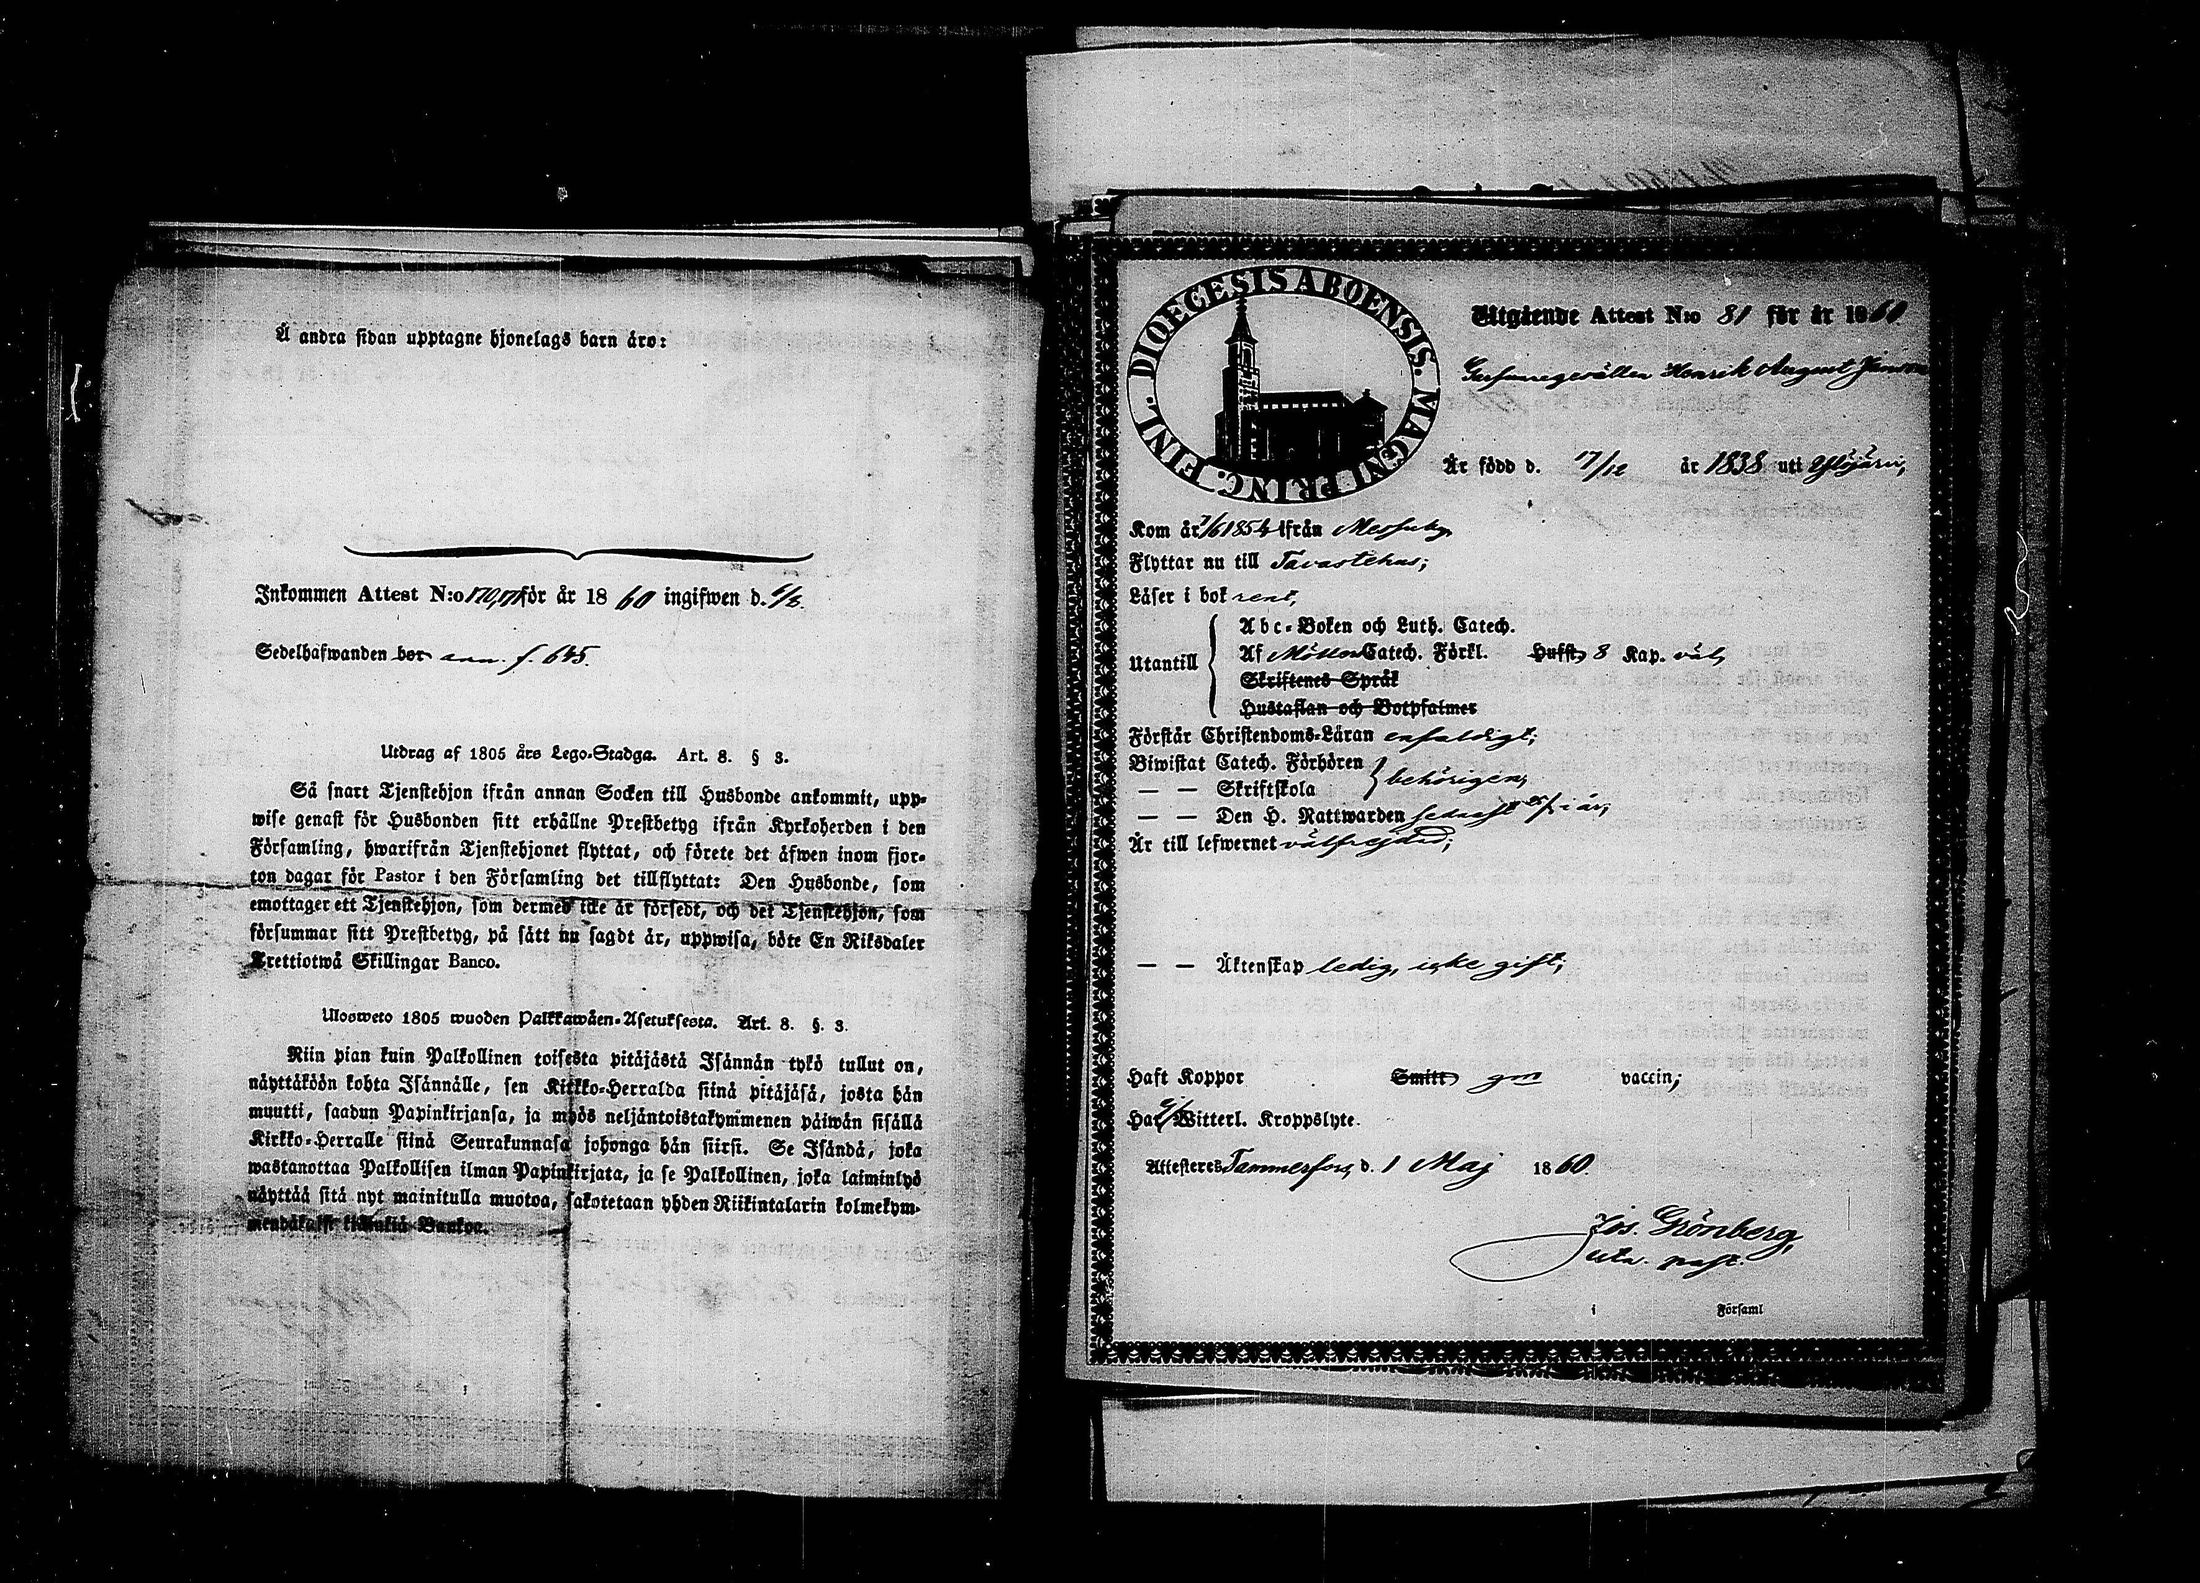 Å andra sidan upptagne hjonelags barn äro:
Inkommen Attest N:o 170,171 för år 1860 ingifwen d. 6/8.
Sedelhafwanden bor ann. f. 645.
Utdrag af 1805 års Lego-Stadga. Art. 8. § 3.
Så snart Tjenstehjon ifrån annan Socken till Husbonde ankommit, upp-
wise genast för Husbonden sitt erhållne Prestbetyg ifrån Kyrkoherden i den
Församling, hwarifrån Tjenstehjonet flyttat, och förete det äfwen inom fjor-
ton dagar för Pastor i den Församling det tillflyttat: Den Husbonde, som
emottager ett Tjenstehjon, som dermed icke är försedt, och det Tjenstehjon, som
försummar sitt Prestbetyg, på sätt nu sagdt är, uppwisa, böte En Riksdaler
Trettiotwå Skillingar Banco.
Ulosweto 1805 wuoden Palkkawäen-Asetuksesta. Art. 8. §. 3.
Niin pian kuin Palkollinen toisesta pitäjästä Isännän tykö tullut on,
näyttäköön kohta Isännälle, sen Kirkko-Herralda siinä pitäjäsä, josta hän
muutti, saadun Papinkirjansa, ja myös neljäntoistakymmenen päiwän sisällä
Kirkko-Herralle siinä Seurakunnasa johonga hän siirsi. Se Isändä, joka
wastanottaa Palkollisen ilman Papinkirjata, ja se Palkollinen, joka laiminlyö
näyttää sitä nyt mainitulla muotoa, sakotetaan yhden Riikintalarin kolmekym-
mendäkaksi killinkiä Bankoa.
DIOECESIS ABOENSIS. MAGNI PRINC. FINL.
Utgående Attest N:o 81 för år 1860.
Garfwaregesällen Henrik August Janson
Är född d. 17/12 år 1838 uti Ylöjärvi,
Kom år 7/6 1854 ifrån Messuby
Flyttar nu till Tavastehus;
Läser i bok rent,
Utantill
Abc-Boken och Luth. Catech.
Af Möllers Catech. Förkl. Hufst. 8 Kap. väl,
Skriftenes Språk
Hustaflan och Botpsalmer
Förstår Christendoms-Läran enfaldigt;
Biwistat Catech. Förhören
— — Skriftskola
behörigen,
— — Den H. Nattwarden sednast i år,
Är till lefwernet välfrejdad;
— — Äktenskap ledig, icke gift;
Haft Koppor Smitt- gm vaccin;
Har Witterl. Kroppslyte.
Attesteres Tammerfors, d. 1 Maj 1860
Jos. Grönberg,
past.
i Församl